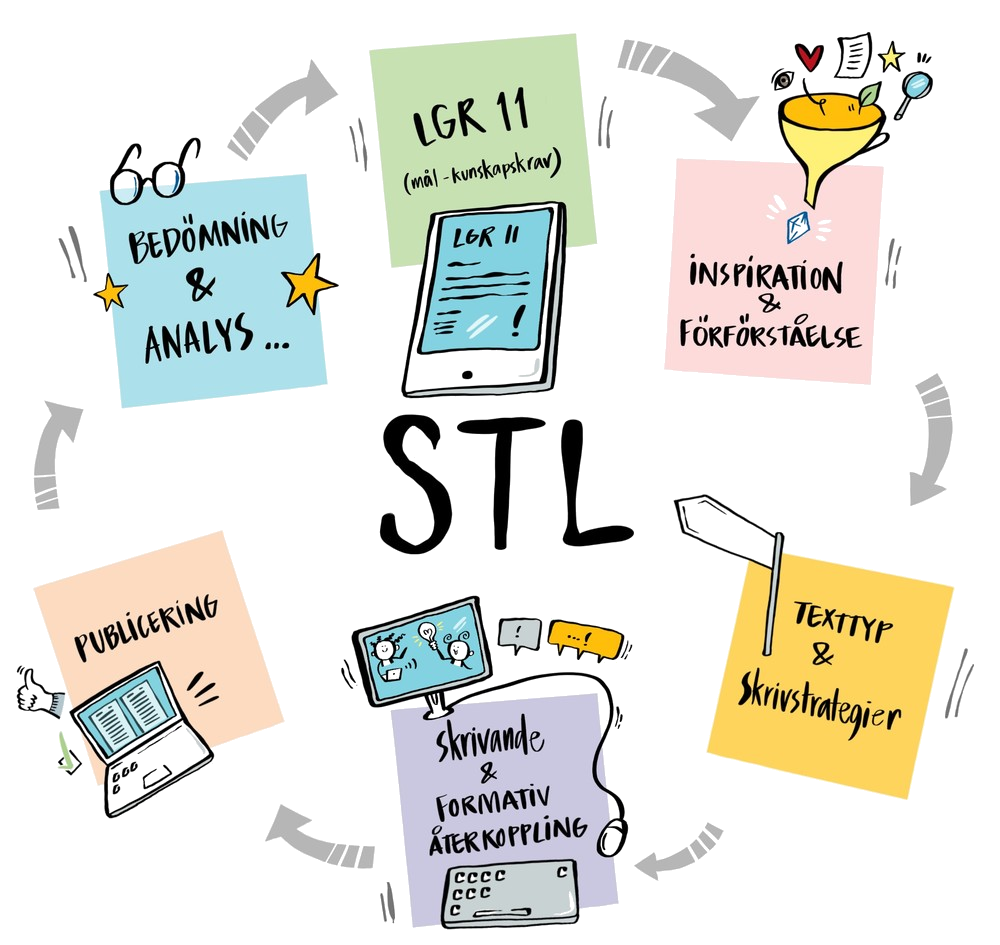 LGR 11
(mål - kunskapskrav)
LGR 11
!
INSPIRATION
&
FÖRFÖRSTÅELSE
TEXTTYP
&
Skrivstrategier
! ...!
Skrivande
&
FORMATIV
ÅTERKOPPLING
PUBLICERING
BEDÖMNING
&
ANALYS ...
STL